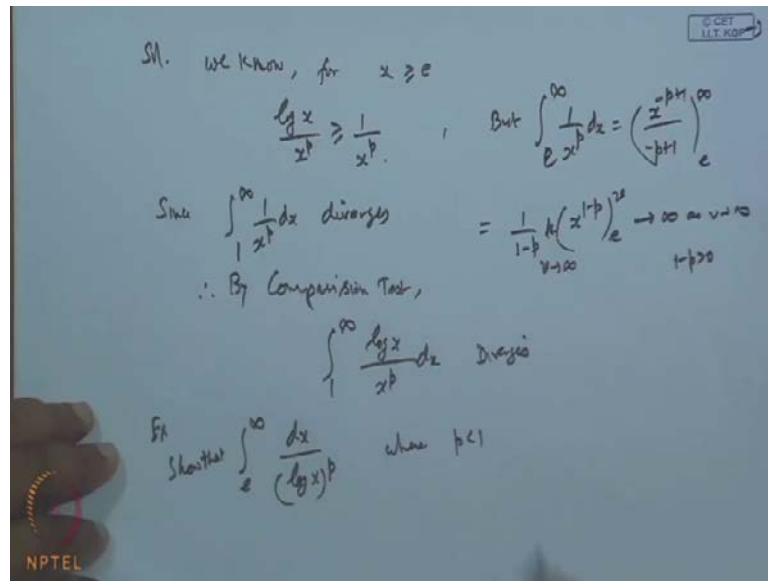 © CET
I.I.T. KGP
Sol. we know, for x ≥ e
log x / x^p ≥ 1 / x^p. , But ∫_e^∞ 1/x^p dx = (x^{-p+1} / -p+1)_e^∞
Since ∫_1^∞ 1/x^p dx diverges = 1/1-p lt_{v→∞} (x^{1-p})_e^v → ∞ as v→∞
1-p>0
∴ By Comparision Test,
∫_1^∞ log x / x^p dx Diverges
Ex
Show that ∫_e^∞ dx / (log x)^p where p<1
NPTEL